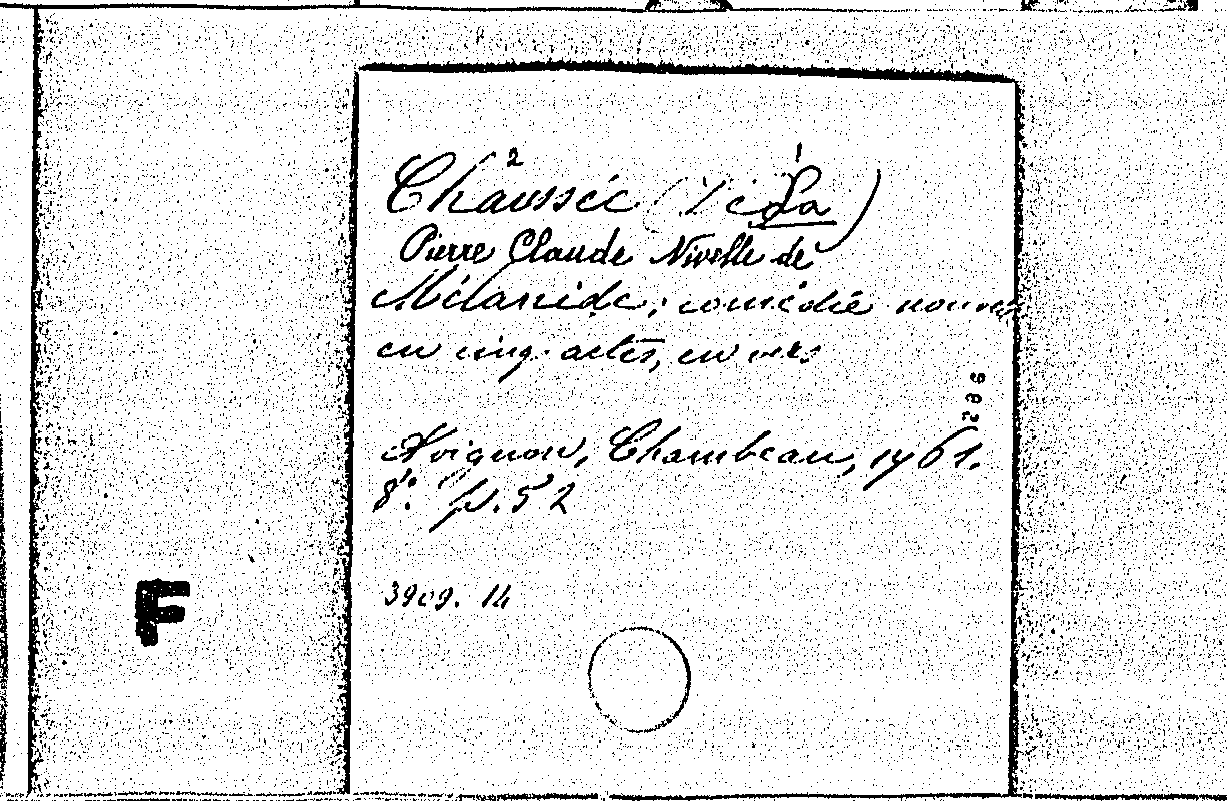 Chaussée (De La)
Pierre Claude Nivelle de
Mélanide; comédie nouvelle
en cinq actes, en vers
286
Avignon, Chambeau, 1761.
8°. p. 52
3909. 14
F